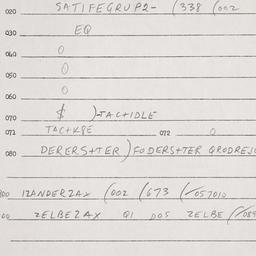 020 SATIFEGRUP2- (338 (002
030 EQ
040 0
050 0
060 0
070 $ )-TAC+IDLE
071 TAC+KPE 072 0
080 DERERS+TER )FODERS+TER
00 IZANDERZAX (002 (673 (/057010
00 ZELBEZAX Q1 POS ZELBE (/089